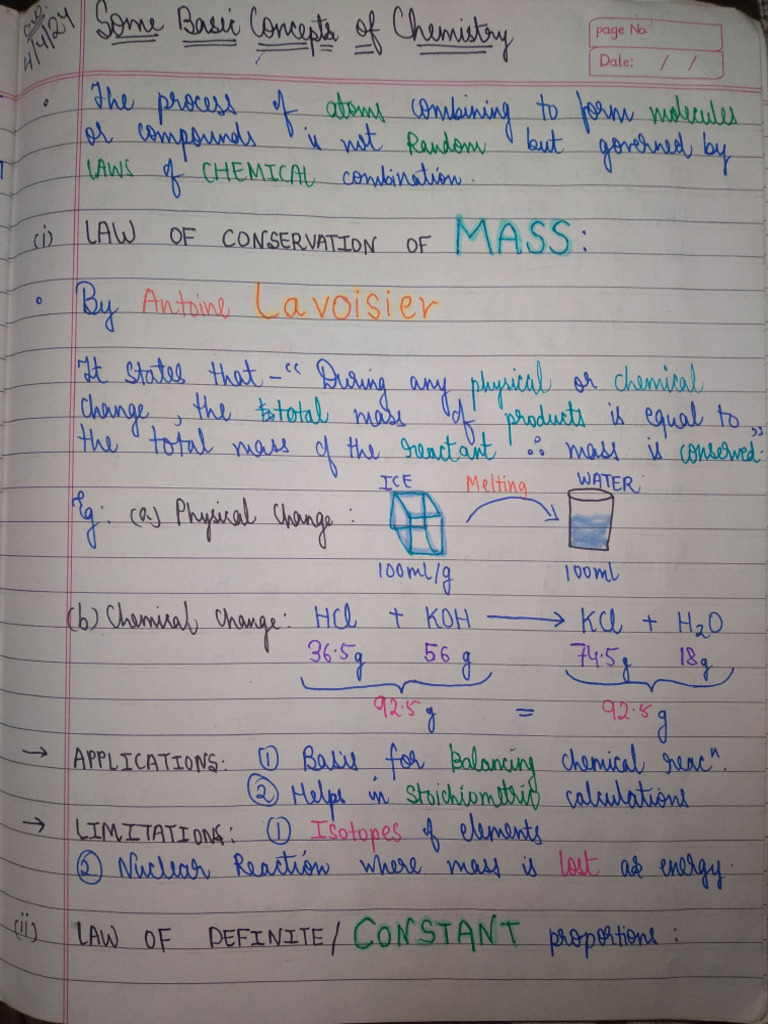 4/4/24
Some Basic Concepts of Chemistry
page No.
Date: / /
• The process of atoms combining to form molecules
or compounds is not Random but governed by
LAWS of CHEMICAL combination.
(i) LAW OF CONSERVATION OF MASS:
• By Antoine Lavoisier
It states that - “ During any physical or chemical
change, the total mass of products is equal to
the total mass of the reactant ∴ mass is conserved. ”
ICE Melting WATER
Eg: (a) Physical Change:
100ml/g 100ml
(b) Chemical Change: HCl + KOH ⟶ KCl + H₂O
36.5g 56 g 74.5g 18g
92.5 g = 92.5 g
→ APPLICATIONS: ① Basis for balancing chemical reacⁿ.
② Helps in Stoichiometric calculations
→ LIMITATIONS: ① Isotopes of elements
② Nuclear Reaction where mass is lost as energy.
(ii) LAW OF DEFINITE/CONSTANT proportions: